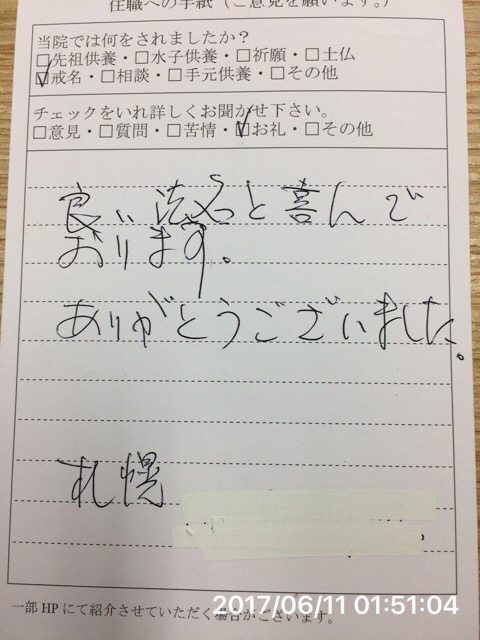 住職への手紙（ご意見を願います。）
当院では何をされましたか？
□先祖供養・□水子供養・□祈願・□土仏
☑戒名・□相談・□手元供養・□その他
チェックをいれ詳しくお聞かせ下さい。
□意見・□質問・□苦情・☑お礼・□その他
良い法名と喜んで
おります。
ありがとうございました。
札幌
一部HPにて紹介させていただく場合がございます。
2017/06/11 01:51:04